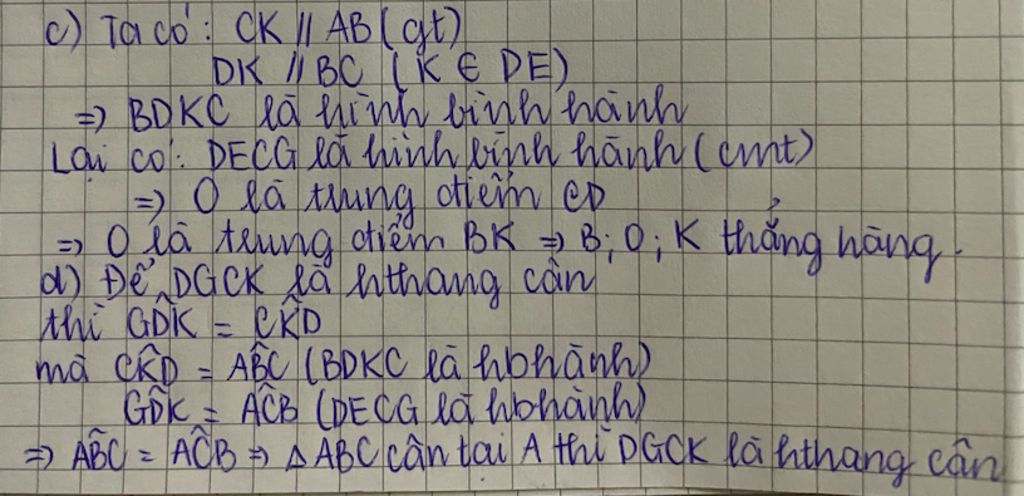 c) Ta có: CK // AB (gt)
DK // BC (K ∈ DE)
=> BDKC là hình bình hành
Lại có: DECG là hình bình hành (cmt)
=> O là trung điểm CD
=> O là trung điểm BK => B; O; K thẳng hàng.
d) Để DGCK là hthang cân
thì GD̂K = CK̂D
mà CK̂D = AB̂C (BDKC là hbhành)
GD̂K = AĈB (DECG là hbhành)
=> AB̂C = AĈB => △ABC cân tại A thì DGCK là hthang cân